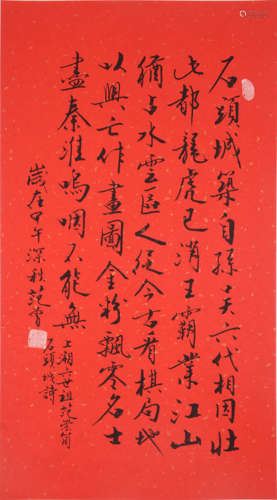 石頭城築自孫吳六代相因壯
此都龍虎已消王霸業江山
猶占水雲區人從今古看棋局地
以興亡作畫圖金粉飄零名士
盡秦淮嗚咽不能無
歲在甲午深秋范曾
上溯六世祖范崇簡
石頭城詩